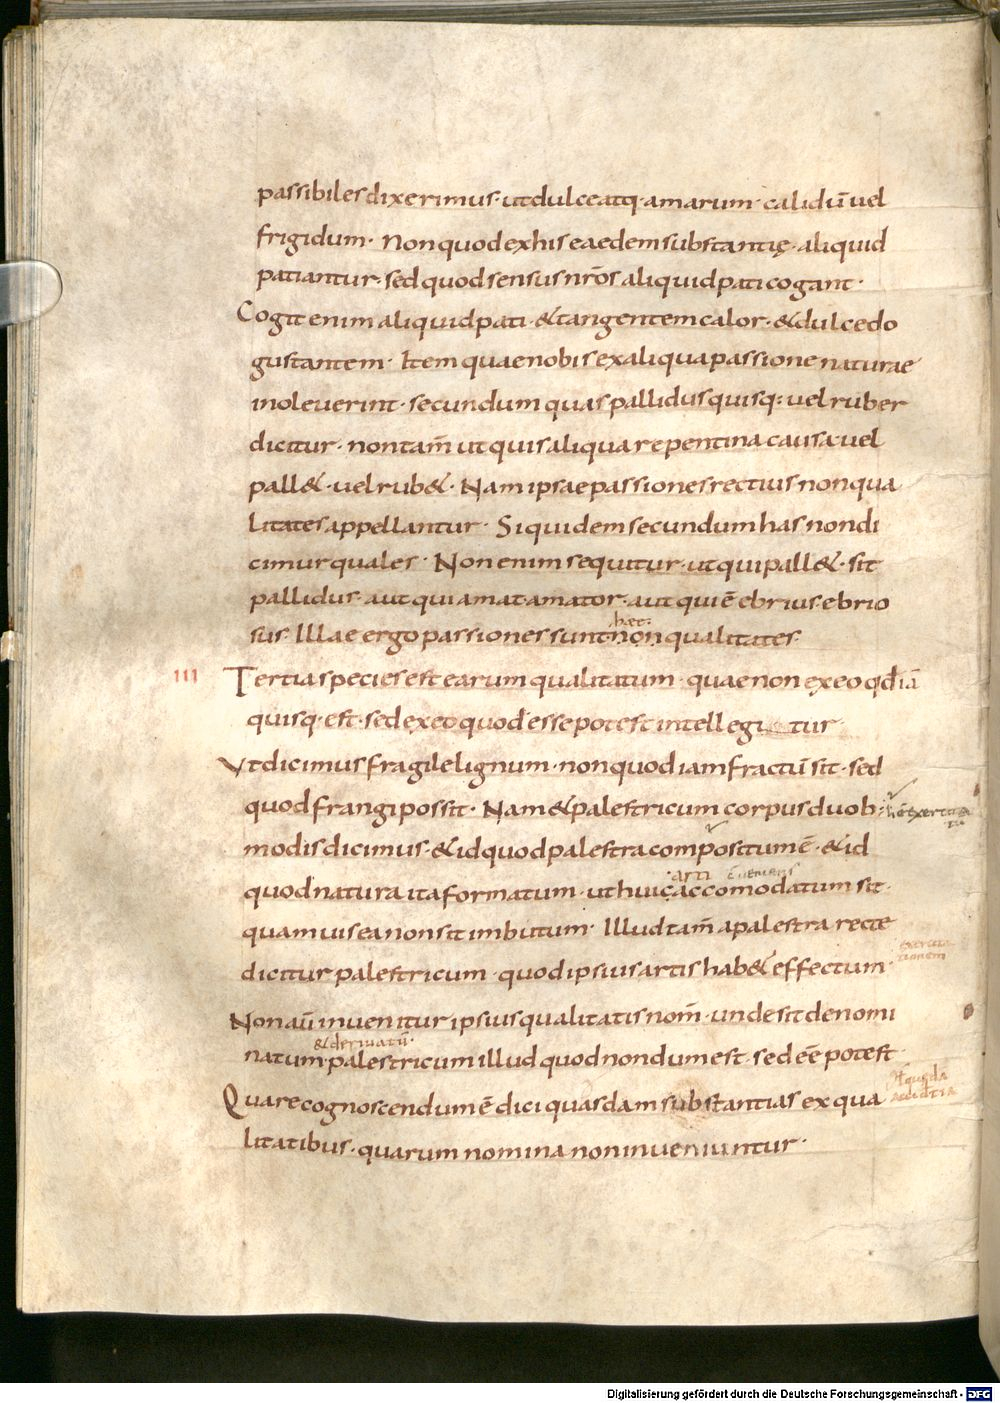 passibiles dixerimus· ut dulce atq· amarum· calidū uel
frigidum· Non quod ex his eaedem substantię· aliquid
patiantur· sed quod sensus nr̄os aliquid pati cogant·
Cogit enim aliquid pati· & tangentem calor· & dulcedo
gustantem· Item quae nobis ex aliqua passione naturae
inoleuerint· secundum quas pallidus quisq: uel ruber
dicitur· non tam̄ ut quis aliqua repentina causa· uel
pall&· uel rub&· Nam ipsae passiones rectius non qua
litates appellantur· Siquidem secundum has non di
cimur quales· Non enim sequitur· ut qui pall&· sit
pallidus· aut qui amat amator· aut qui ē ebrius ebrio
sus· Illae ergo passiones sunt non qualitates·
III Tertia species est earum qualitatum· quae non ex eo qđ iā
quisq· est· sed ex eo quod esse potest intellegi tur·
Vt dicimus fragile lignum· non quod iam fractū sit· sed
quod frangi possit· Nam & palestricum corpus duob:
modis dicimus· & id quod palestra compositum ē· & id
arti
quod natura ita formatum· ut huic accomodatum sit·
quamuis ea non sit imbutum· Illud tam̄ a palestra recte
dicitur palestricum· quod ipsius artis hab& effectum·
Non aū inuenitur ipsius qualitatis nom̄· unde sit denomi
& deriuatū·
natum· palestricum illud quod nondum est· sed eē potest·
Quare cognoscendum ē dici quasdam substantias ex qua
litatibus· quarum nomina non inueniuntur·
Digitalisierung gefördert durch die Deutsche Forschungsgemeinschaft - DFG